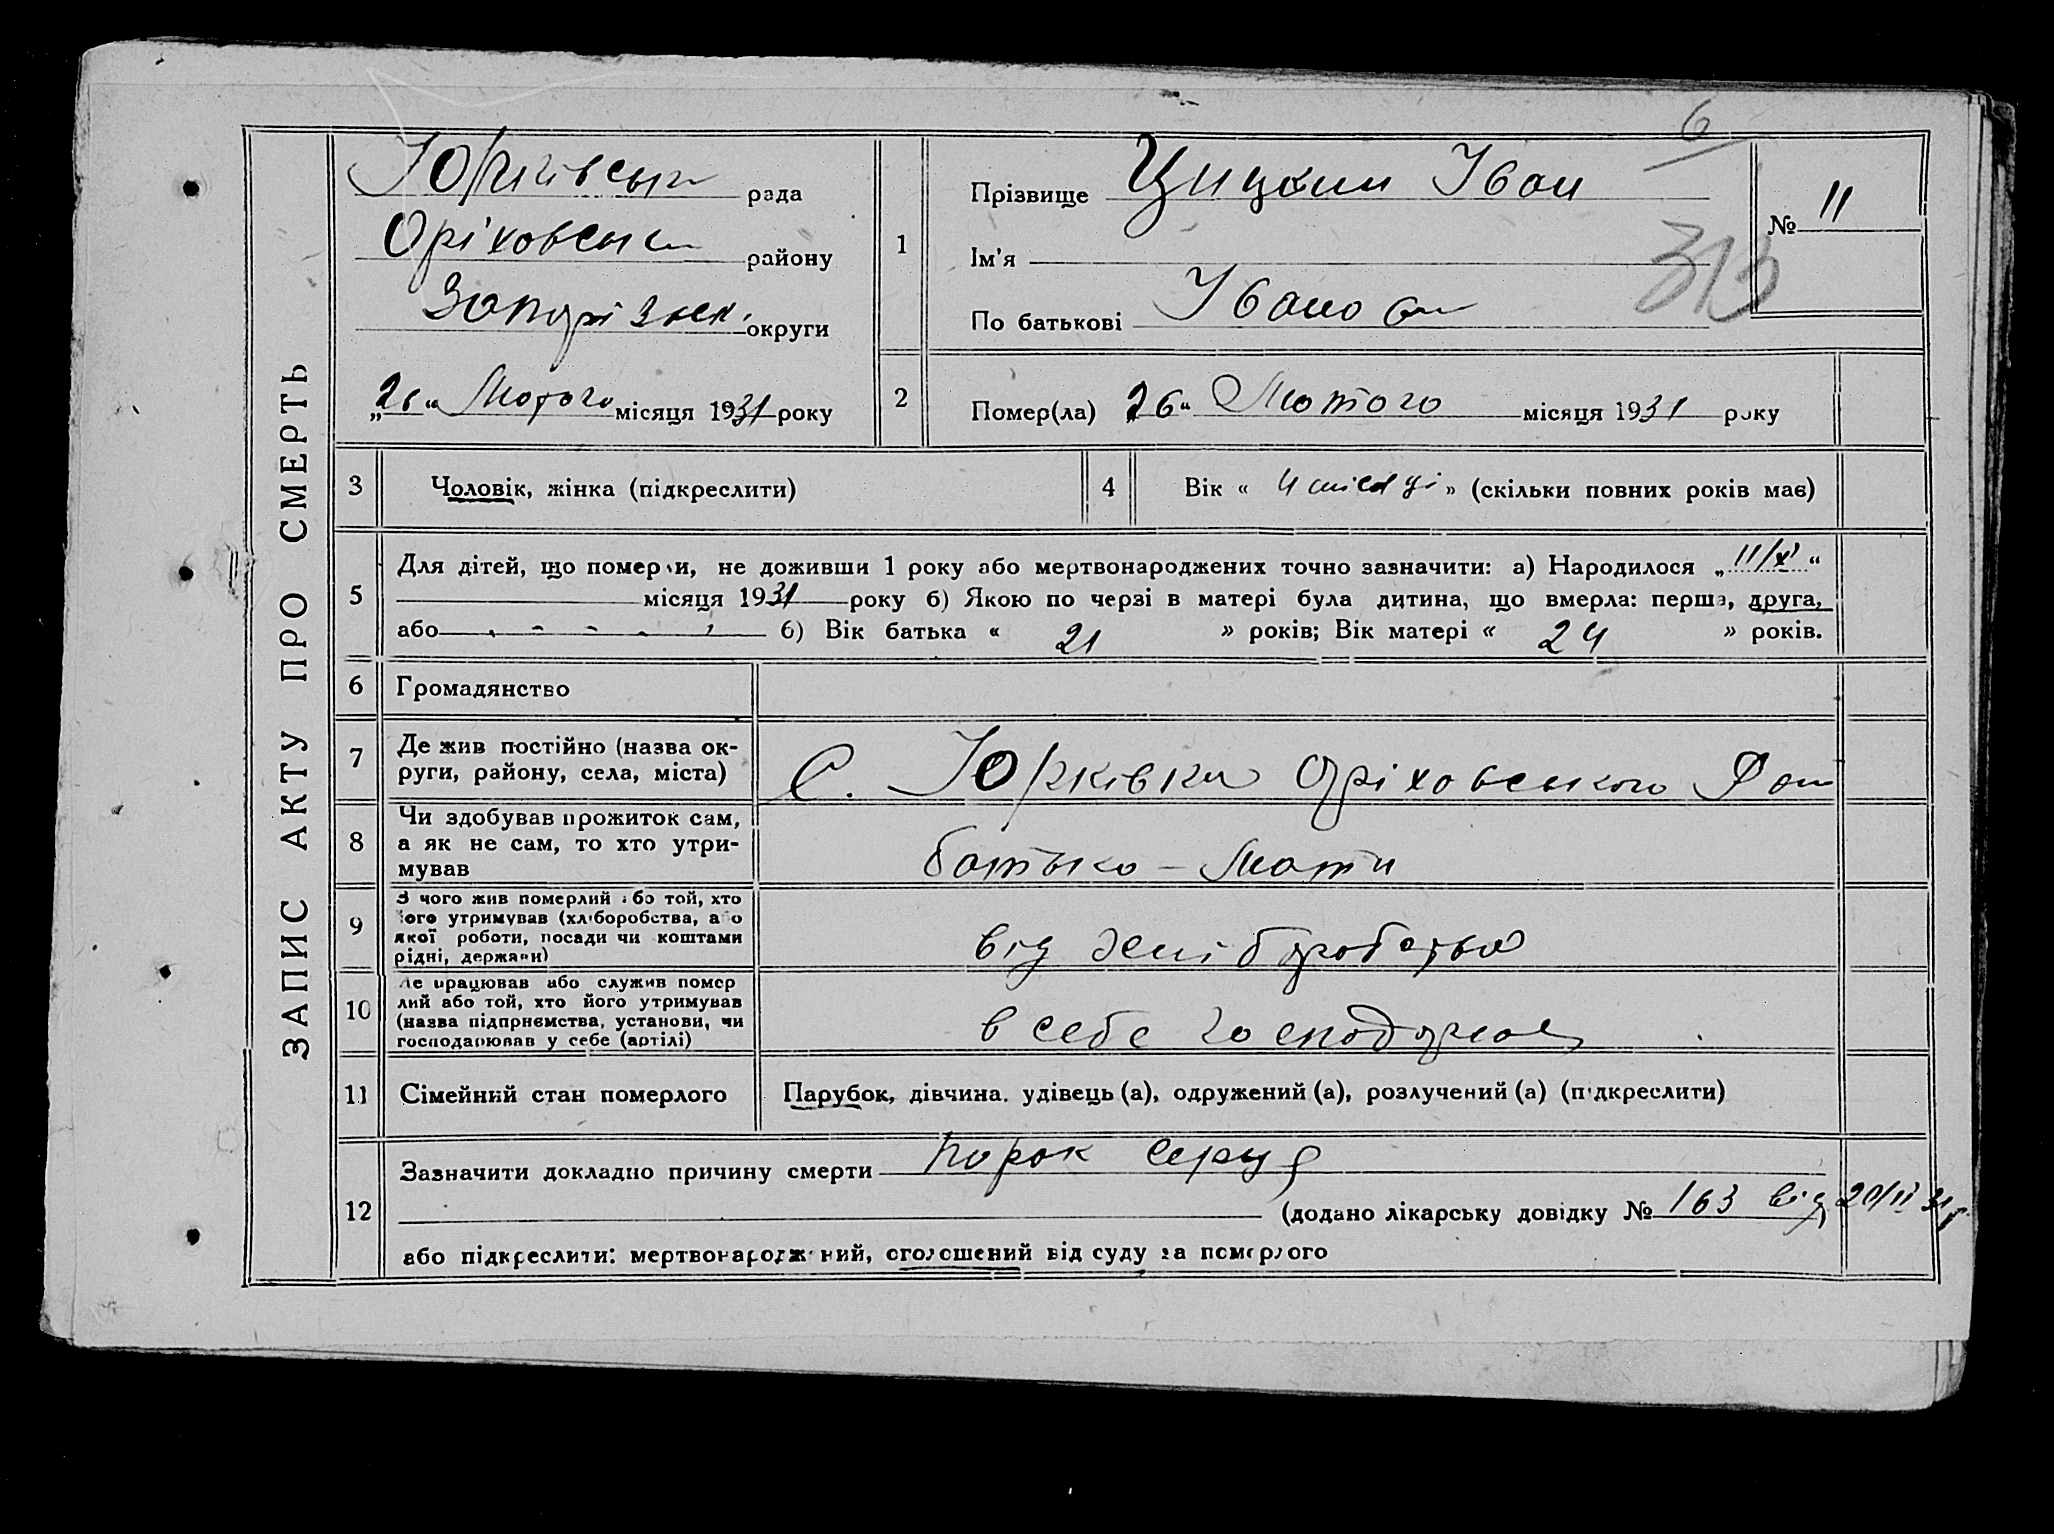 ЗАПИС АКТУ ПРО СМЕРТЬ
6
313
№ 11
рада
Оріховськ району
Запорізьк. округи
„26“ Лютого місяця 1931 року
1
Прізвище Іван
Ім'я
По батькові Іванов
2
Помер(ла) 26“ Лютого місяця 1931 року
3
Чоловік, жінка (підкреслити)
4
Вік « 4 місяці » (скільки повних років має)
5
Для дітей, що померли, не доживши 1 року або мертвонароджених точно зазначити: а) Народилося „ “
місяця 1931 року б) Якою по черзі в матері була дитина, що вмерла: перша, друга,
або 6) Вік батька « 21 » років; Вік матері « 24 » років.
6
Громадянство
7
Де жив постійно (назва ок-
руги, району, села, міста)
С. Юрківка Оріховського Рай
8
Чи здобував прожиток сам,
а як не сам, то хто утри-
мував
батько - Мати
9
З чого жив померлий або той, хто
його утримував (хліборобства, або
якої роботи, посади чи коштами
рідні, держави)
від
10
Де працював або служив помер
лий або той, хто його утримував
(назва підприємства, установи, чи
господарював у себе (артілі)
в себе
11
Сімейний стан померлого
Парубок, дівчина. удівець (а), одружений (а), розлучений (а) (підкреслити)
12
Зазначити докладно причину смерти порок серця
(додано лікарську довідку № 163 від 20/II 31 г.
або підкреслити: мертвонароджений, оголошений від суду за померлого